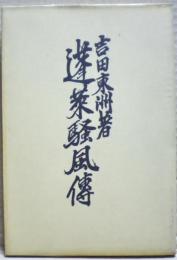 吉田東洲著
蓬莱騒風傳